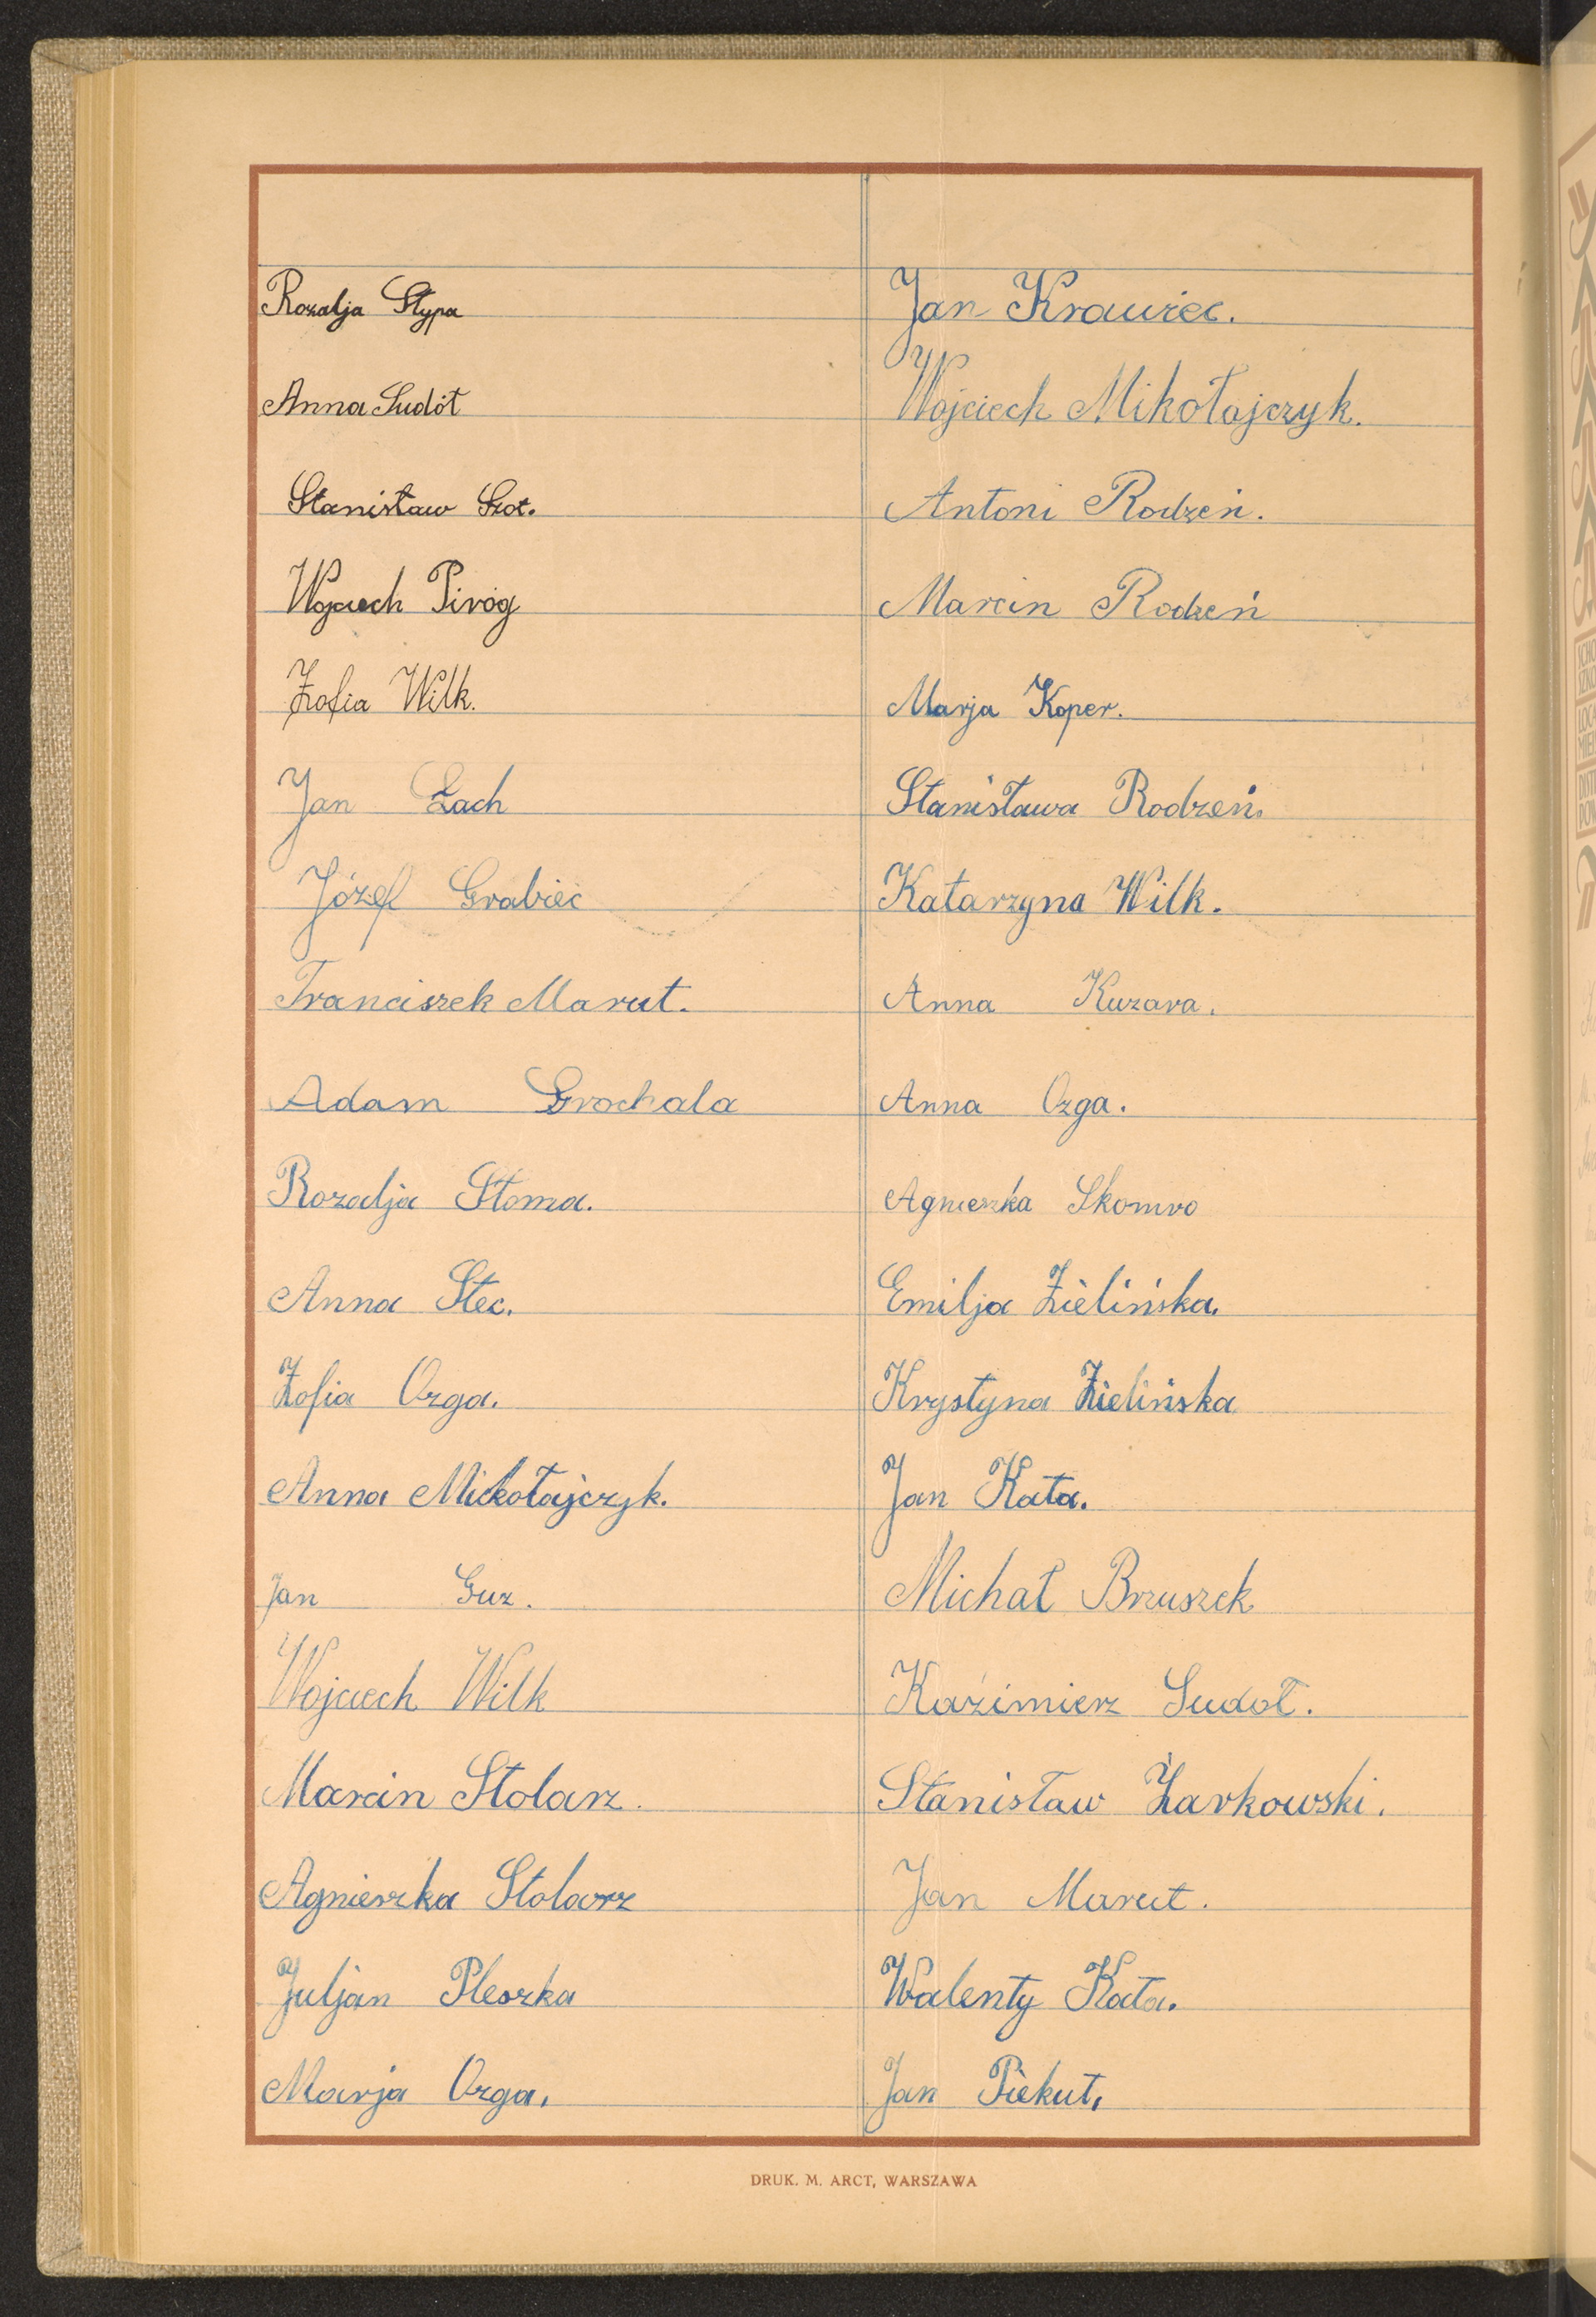 Rozalja Stypa
Anna Sudół
Stanisław Szot.
Wojciech Piróg
Zofia Wilk.
Jan Zach
Józef Grabiec
Franciszek Marut.
Adam Grochala
Rozalja Słoma.
Anna Stec.
Zofia Ozga.
Anna Mickołajczyk.
Jan Guz.
Wojciech Wilk
Marcin Stolarz.
Agnieszka Stolarz
Juljan Pleszka
Marja Ozga.
Jan Krawiec.
Wojciech Mikołajczyk.
Antoni Rodzeń.
Marcin Rodzeń
Marja Koper.
Stanisława Rodzeń.
Katarzyna Wilk.
Anna Kuzara.
Anna Ozga.
Agnieszka Skomro
Emilja Zielińska.
Krystyna Zielińska
Jan Kata.
Michał Bruszek
Kazimierz Sudoł.
Stanisław Żarkowski.
Jan Marut.
Walenty Kata.
Jan Piekut.
DRUK. M. ARCT, WARSZAWA